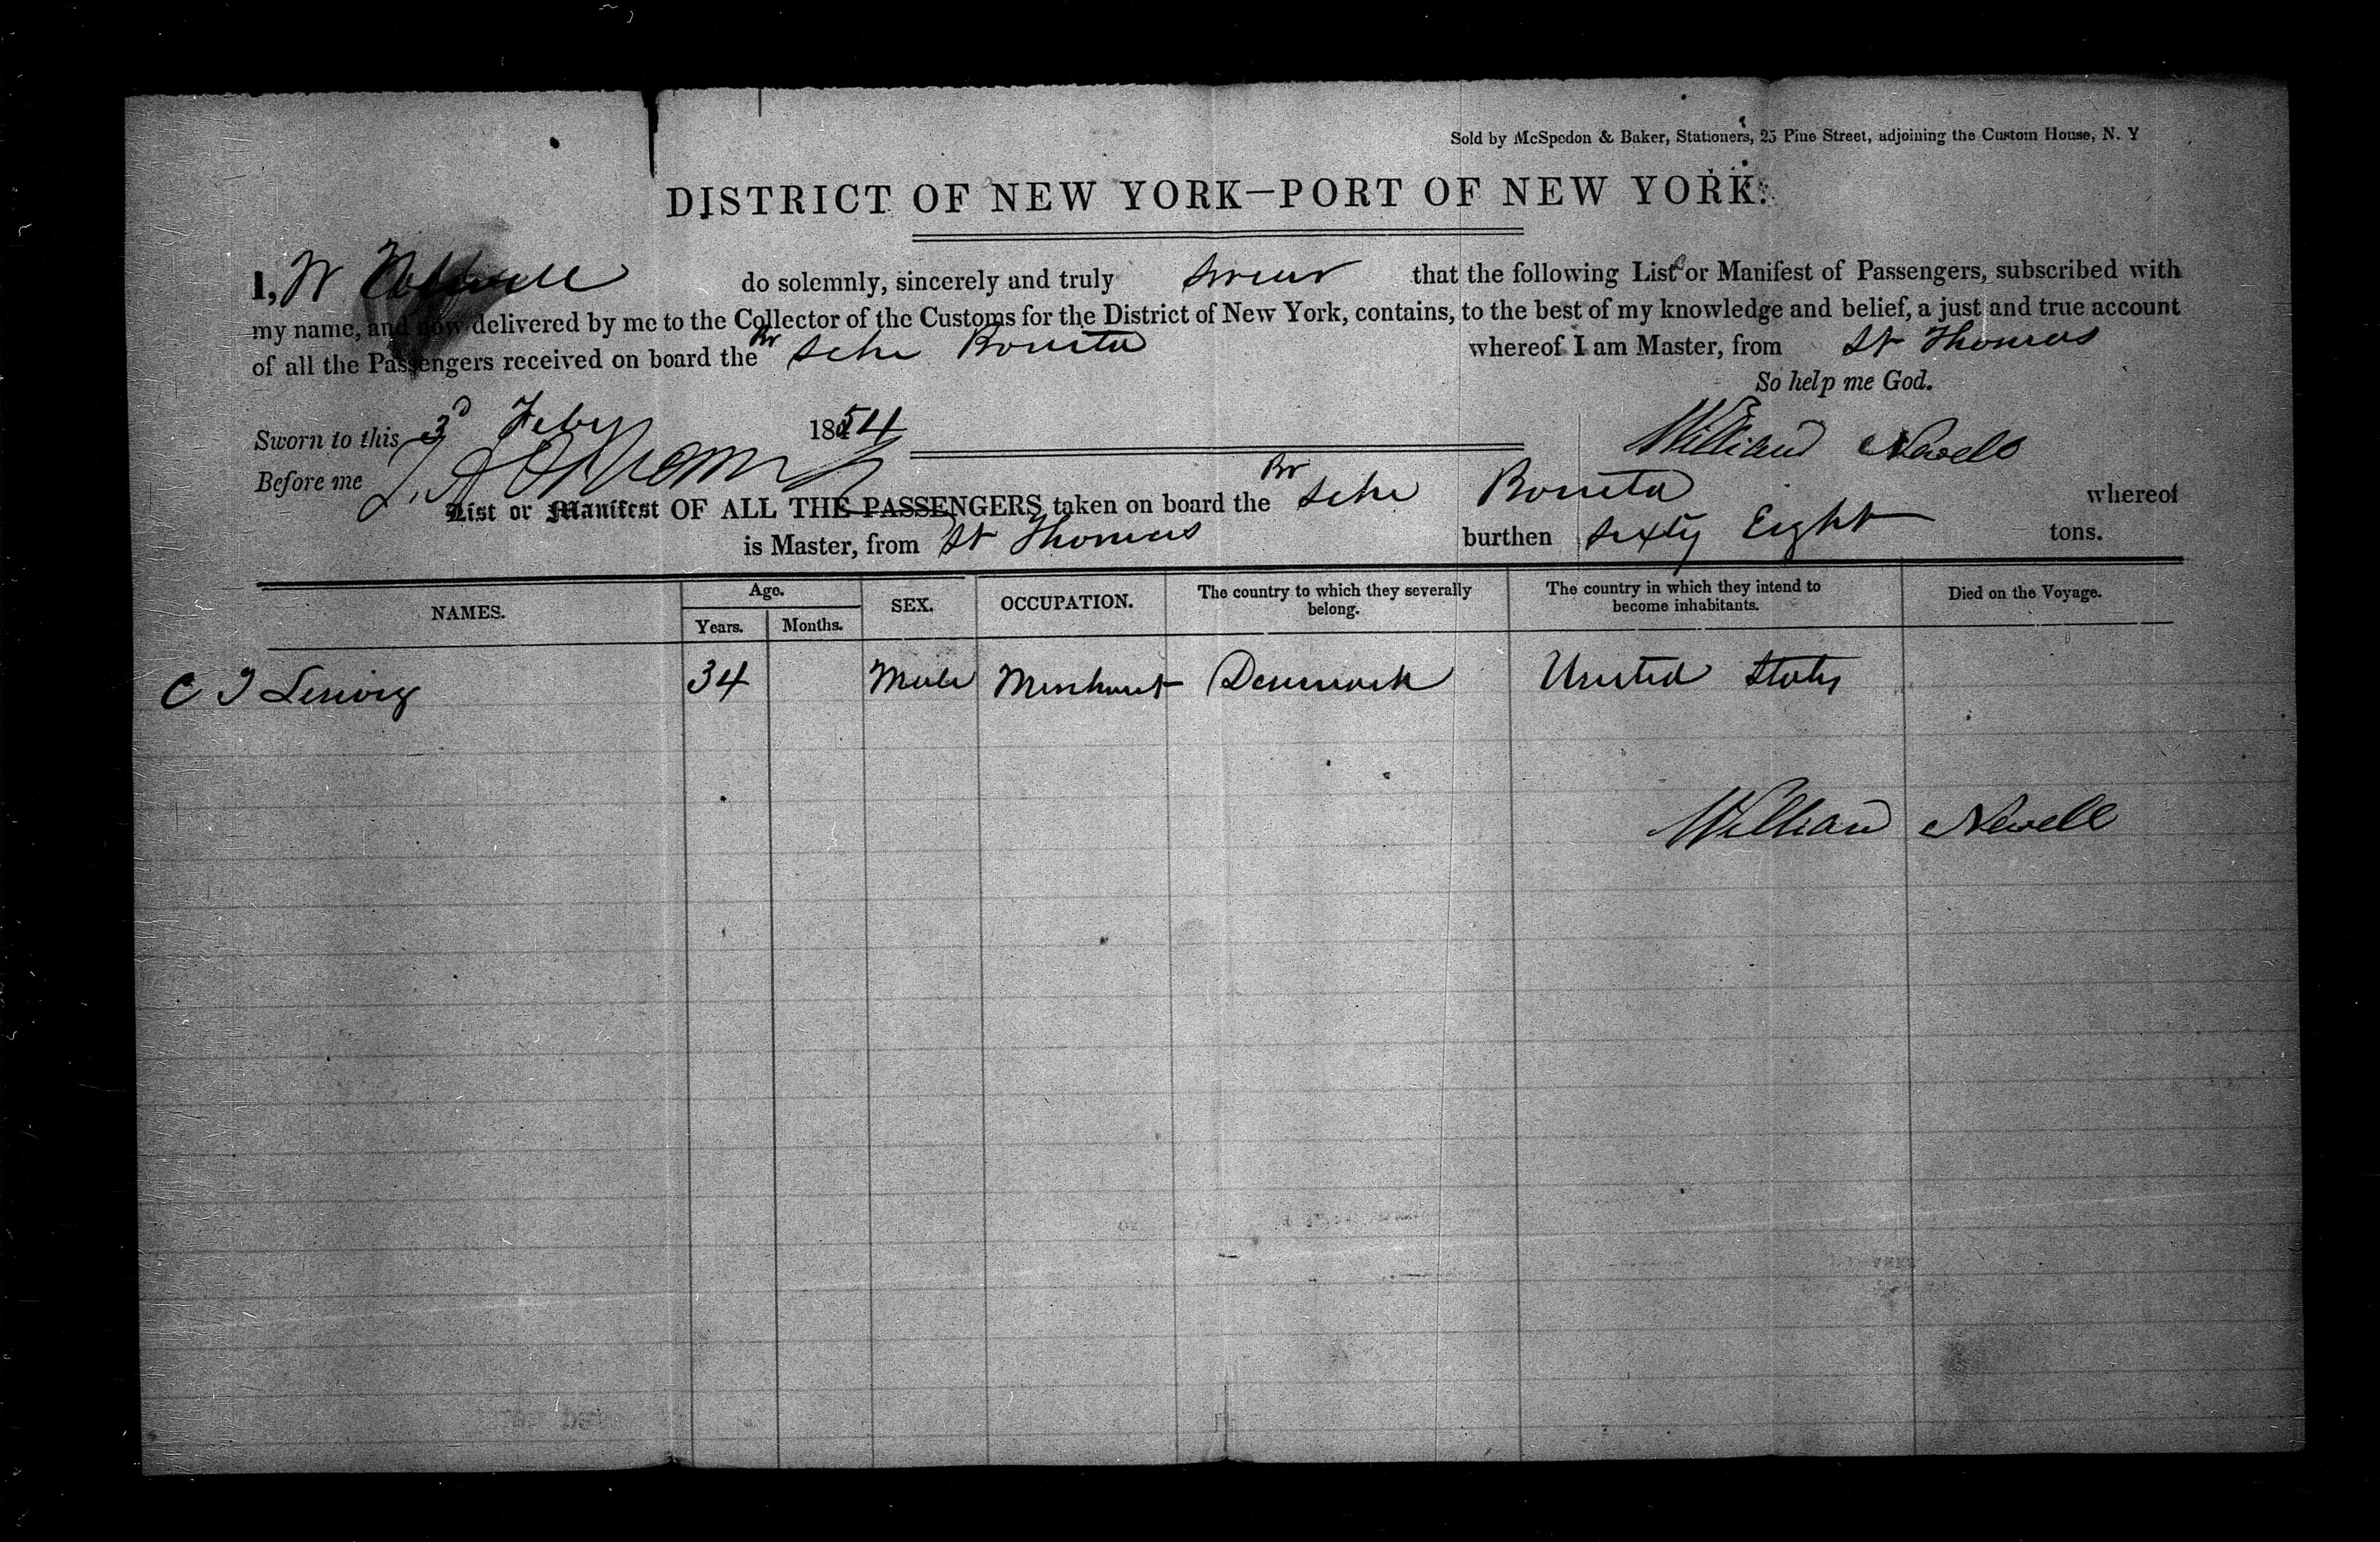 Sold by McSpedon & Baker, Stationers, 25 Pine Street, adjoining the Custom House, N. Y
DISTRICT OF NEW YORK—PORT OF NEW YORK.
I, W Newell do solemnly, sincerely and truly swear that the following List or Manifest of Passengers, subscribed with
my name, and now delivered by me to the Collector of the Customs for the District of New York, contains, to the best of my knowledge and belief, a just and true account
of all the Passengers received on board the Br Schr Bonita whereof I am Master, from St Thomas
So help me God.
Sworn to this 3d Feby 1854
William Newell
Before me
List or Manifest OF ALL THE PASSENGERS taken on board the Br Schr Bonita whereof
is Master, from St Thomas burthen Sixty Eight tons.
NAMES. Age. Years. Months. SEX. OCCUPATION. The country to which they severally belong. The country in which they intend to become inhabitants. Died on the Voyage.
C 34 Male Merchant Denmark United States
William Newell